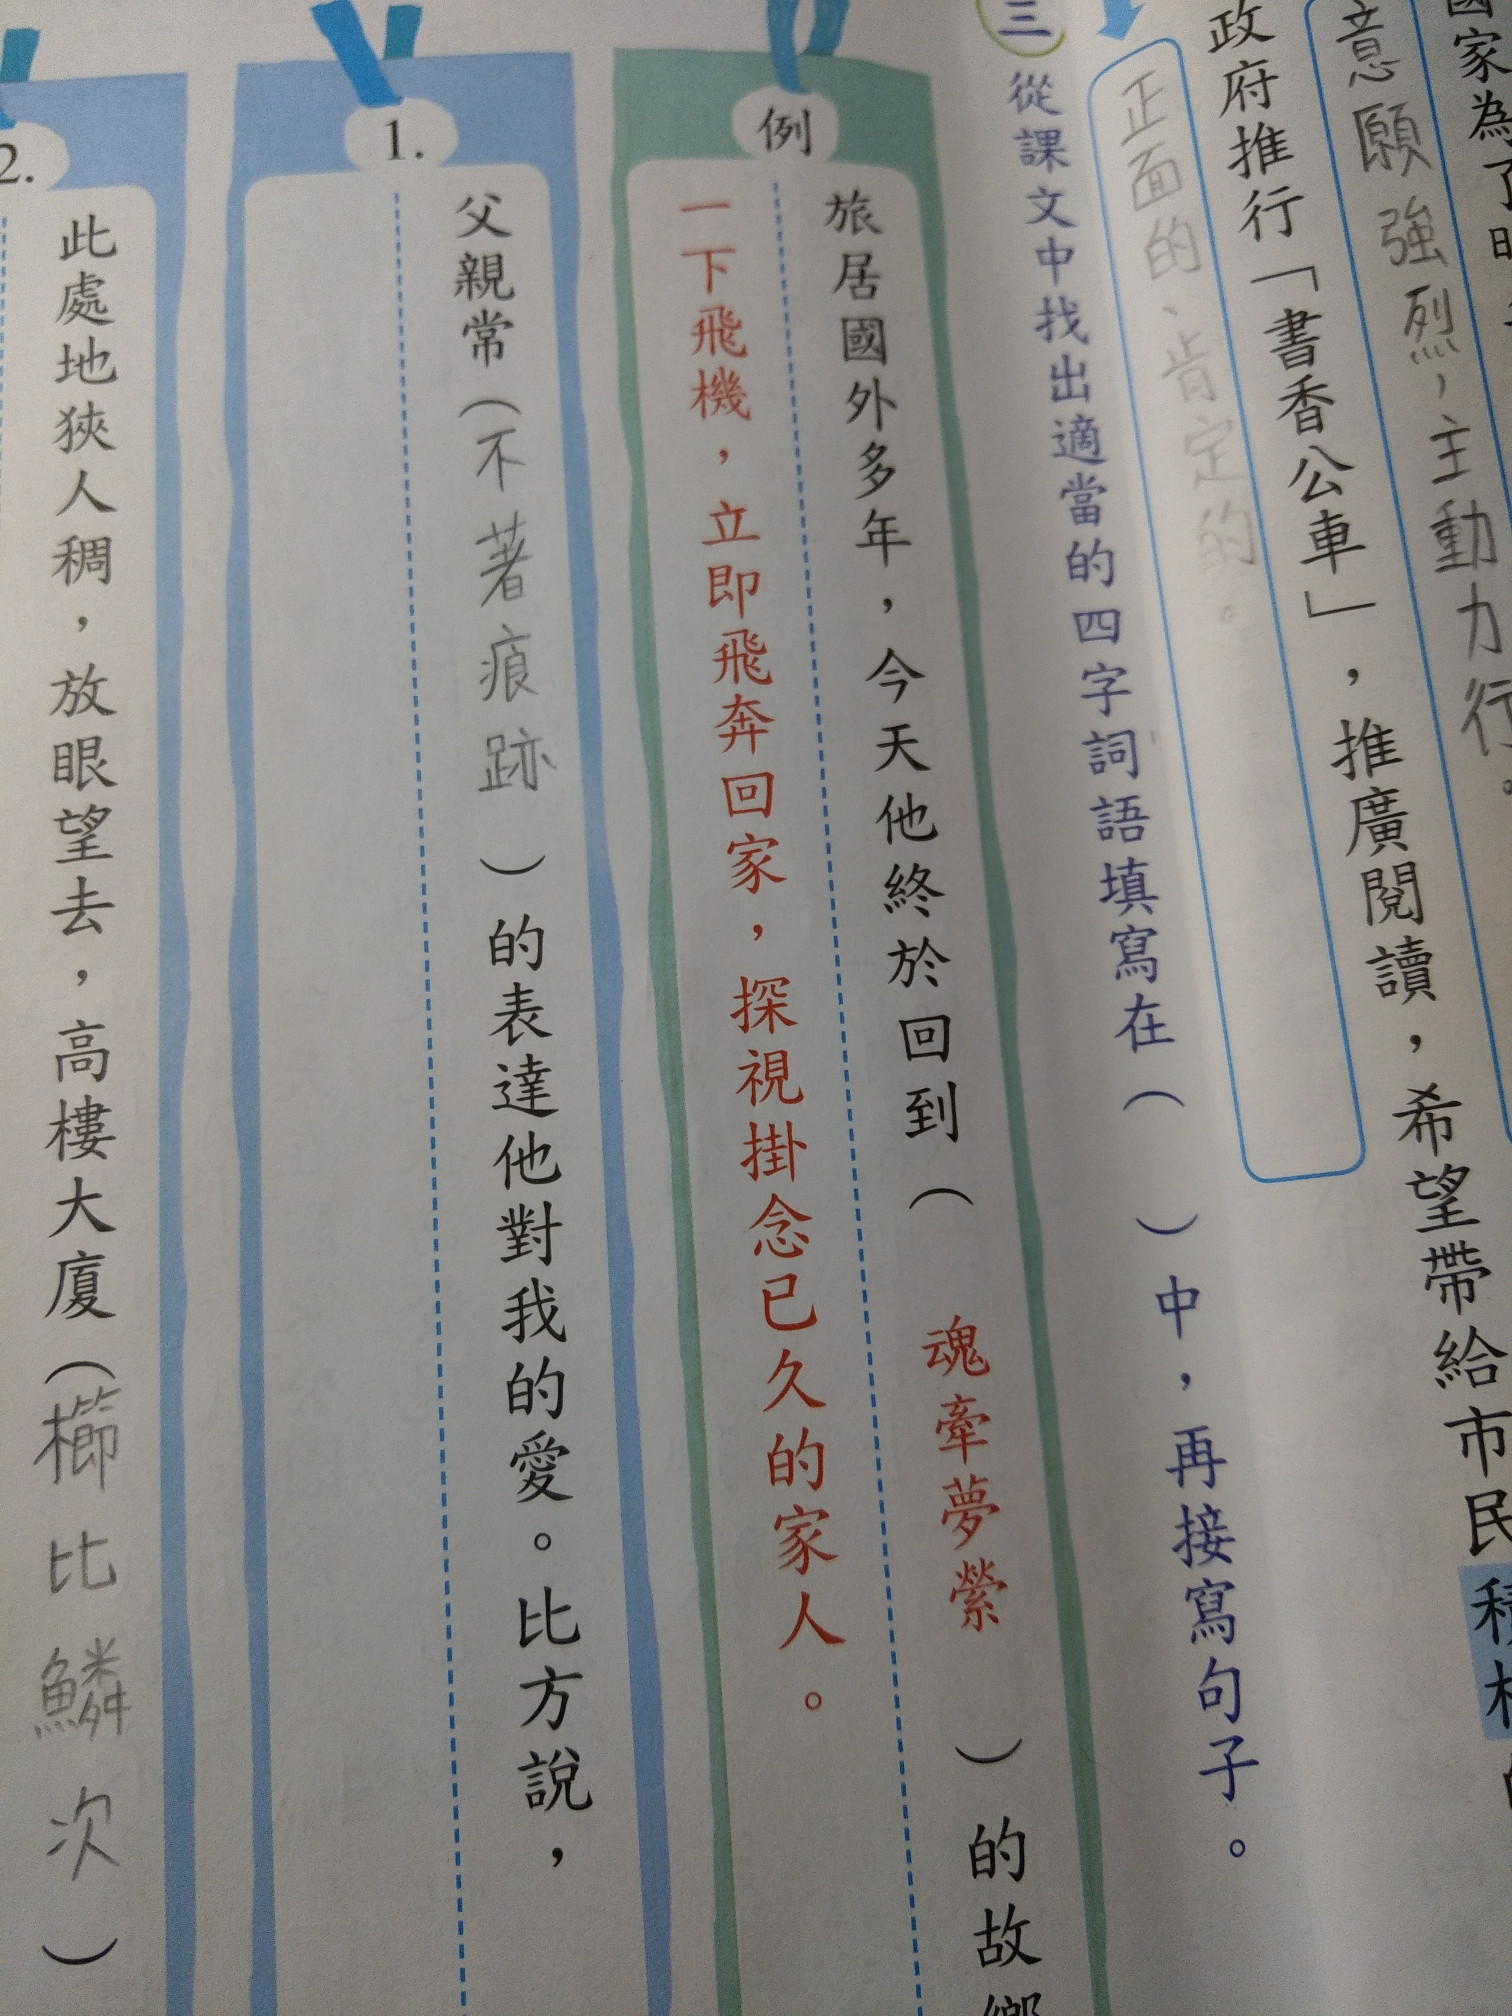 國家為了
意願強烈，主動力行。
政府推行「書香公車」，推廣閱讀，希望帶給市民積
正面的、肯定的。
三 從課文中找出適當的四字詞語填寫在（　　）中，再接寫句子。
例
旅居國外多年，今天他終於回到（魂牽夢縈）的故鄉
一下飛機，立即飛奔回家，探視掛念已久的家人。
1.
父親常（不著痕跡）的表達他對我的愛。比方說，
2.
此處地狹人稠，放眼望去，高樓大廈（櫛比鱗次）